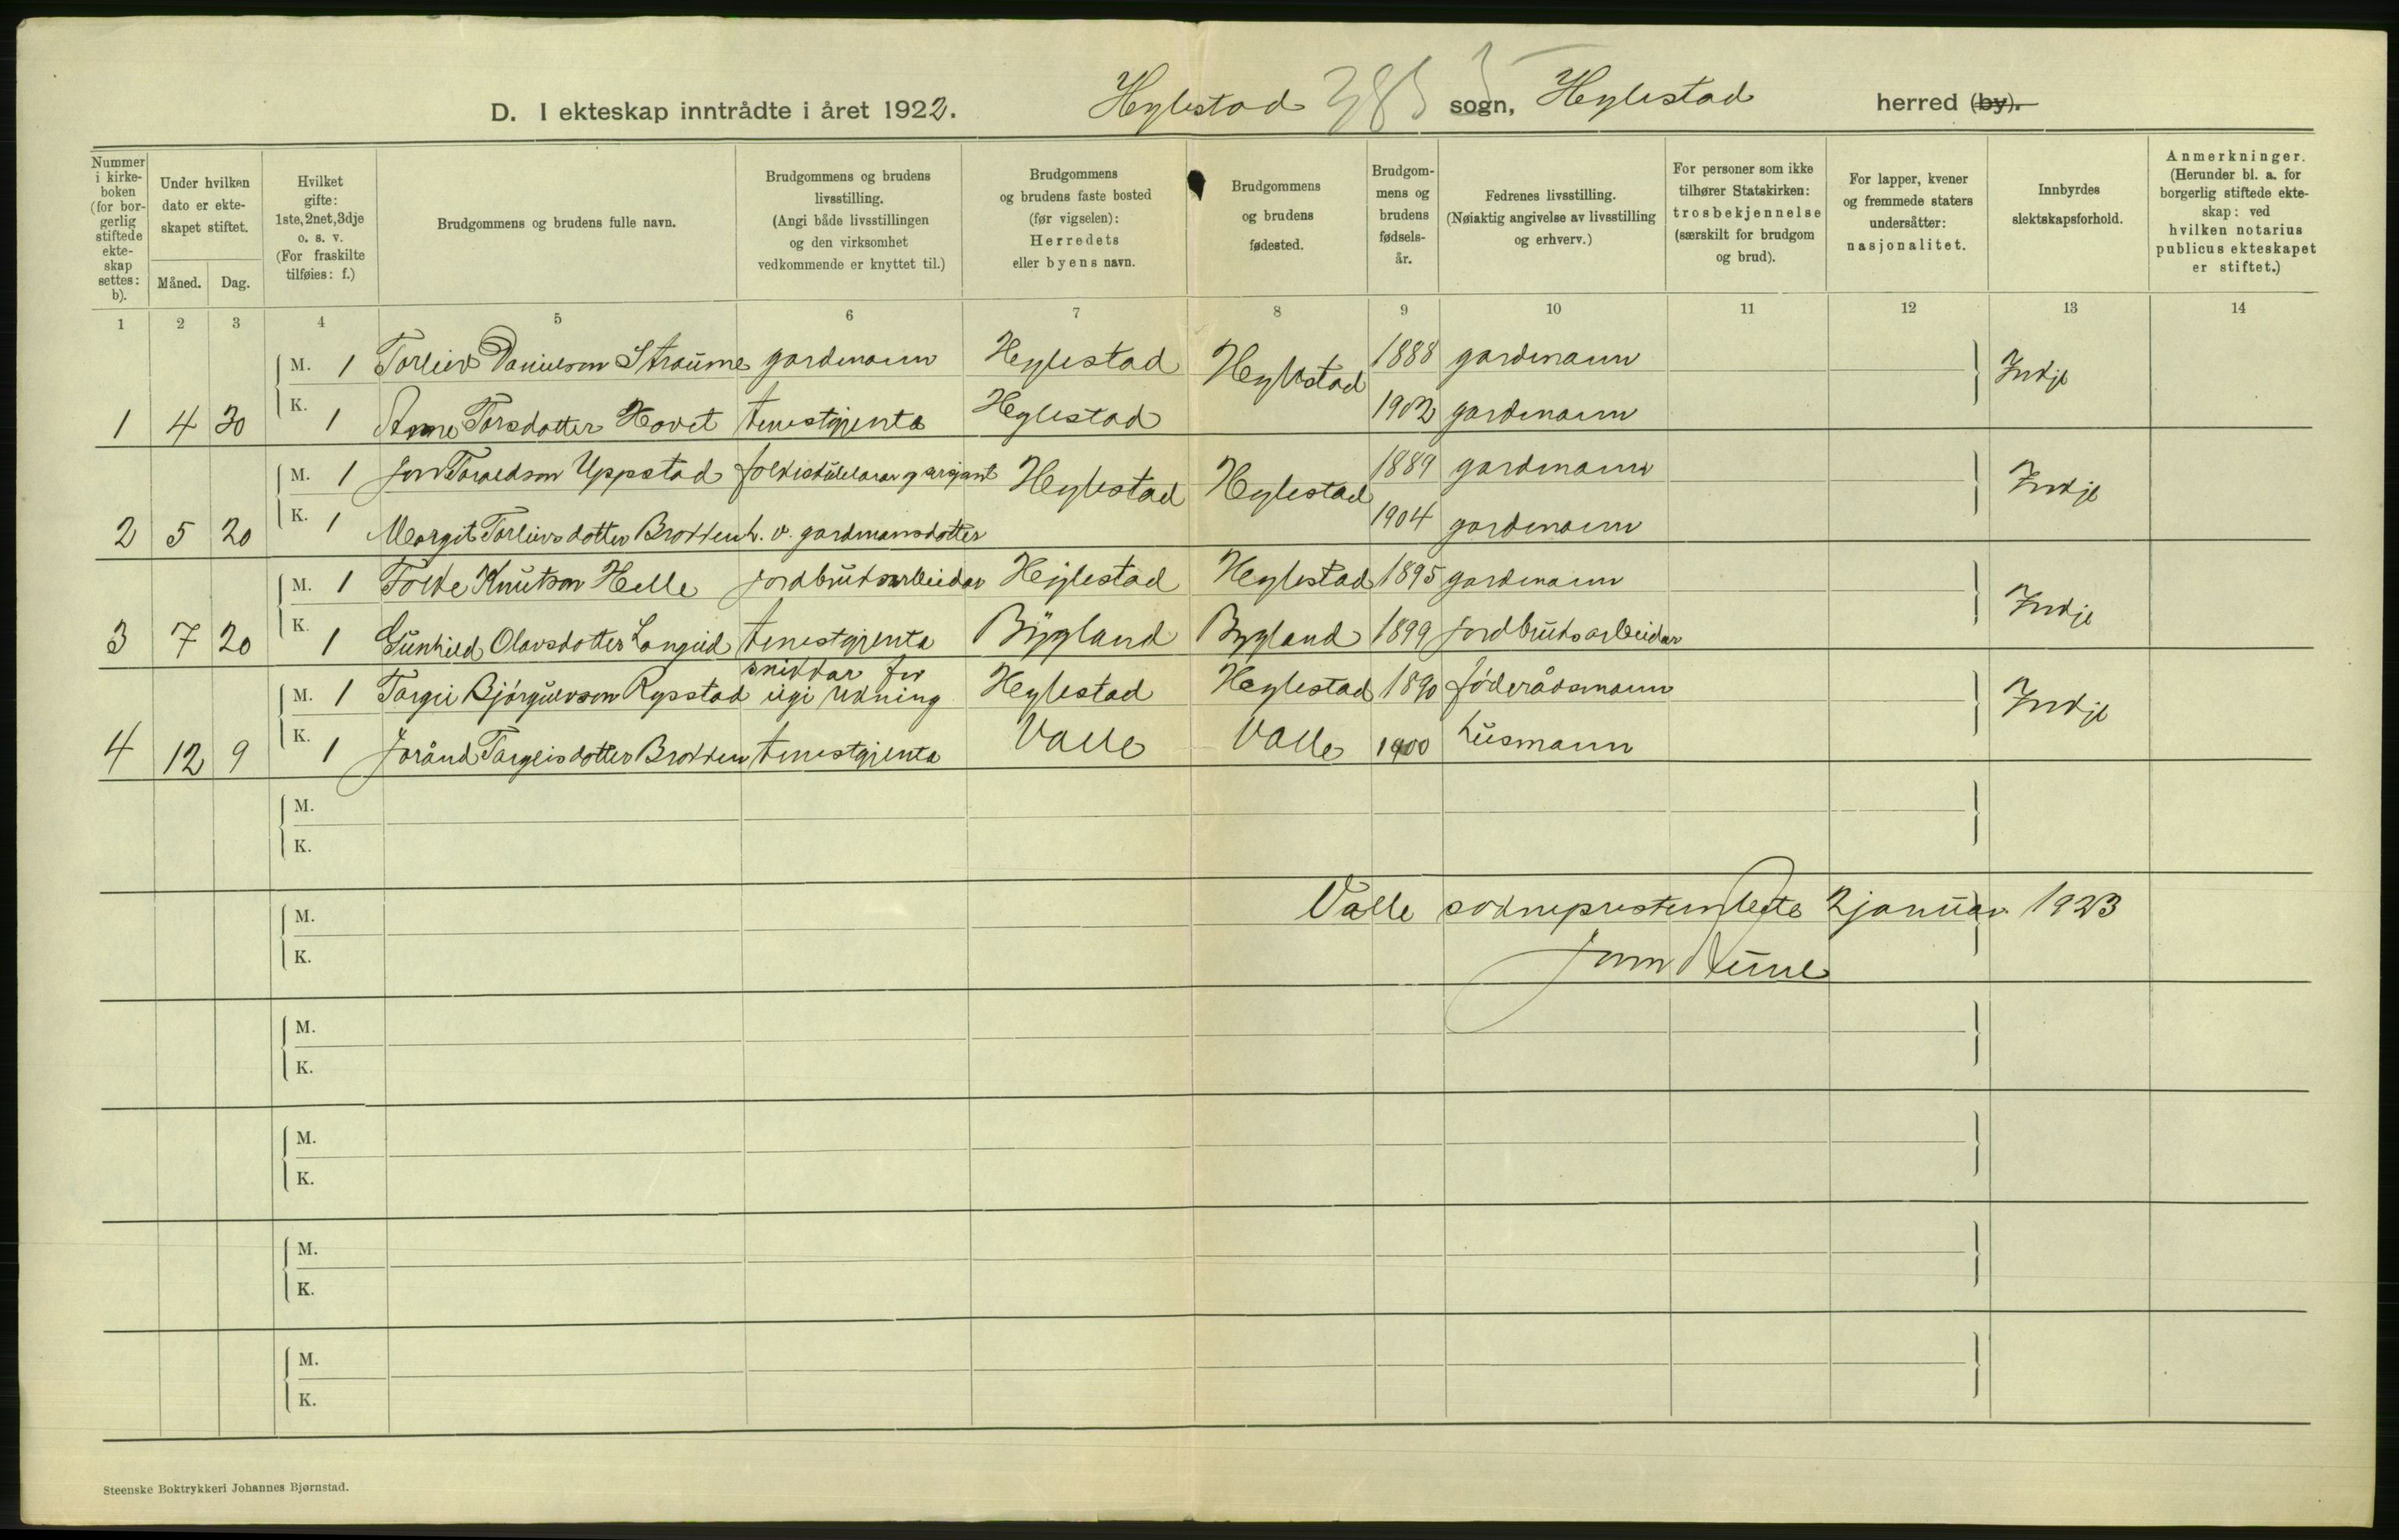 D. I ekteskap inntrådte i året 1922. Hylestad sogn, Hylestad herred (by).
Nummer i kirkeboken (for borgerlig stiftede ekteskap settes: b).
Under hvilken dato er ekteskapet stiftet.
Måned. Dag.
Hvilket gifte: 1ste, 2net, 3dje o. s. v. (For fraskilte tilføies: f.)
Brudgommens og brudens fulle navn.
Brudgommens og brudens livsstilling. (Angi både livsstillingen og den virksomhet vedkommende er knyttet til.)
Brudgommens og brudens faste bosted (før vigselen): Herredets eller byens navn.
Brudgommens og brudens fødested.
Brudgommens og brudens fødselsår.
Fedrenes livsstilling. (Nøiaktig angivelse av livsstilling og erhverv.)
For personer som ikke tilhører Statskirken: trosbekjennelse (særskilt for brudgom og brud).
For lapper, kvener og fremmede staters undersåtter: nasjonalitet.
Innbyrdes slektskapsforhold.
Anmerkninger. (Herunder bl. a. for borgerlig stiftede ekteskap: ved hvilken notarius publicus ekteskapet er stiftet.)
1 2 3 4 5 6 7 8 9 10 11 12 13 14
M. 1 Torleiv Danielson Straume gardmann Hylestad Hylestad 1888 gardmann Inkje
1 4 30 K. 1 Anne Torsdotter Hovet tenestgjenta Hylestad 1902 gardmann
M. 1 Jon Toraldson Uppstad folkiskulelærar sersjant Hylestad Hylestad 1889 gardmann Inkje
2 5 20 K. 1 Margit Torleivsdotter Brokken h. v. gardmansdotter 1904 gardmann
M. 1 Folke Knutson Helle jordbruksarbeidar Hylestad Hylestad 1895 gardmann Inkje
3 7 20 K. 1 Gunhild Olavsdotter Langeid tenestgjenta Bygland Bygland 1899 jordbruksarbeidar
M. 1 Targei Bjørgulvson Rysstad snikkar for eigi rekning Hylestad Hylestad 1890 føderådsmann Inkje
4 12 9 K. 1 Jorånd Targeisdotter Brokken tenestgjenta Valle Valle 1900 husmann
M.
K.
M. Valle sokneprestembete 2 januar 1923
K.
M.
K.
M.
K.
M.
K.
M.
K.
Steenske Boktrykkeri Johannes Bjørnstad.